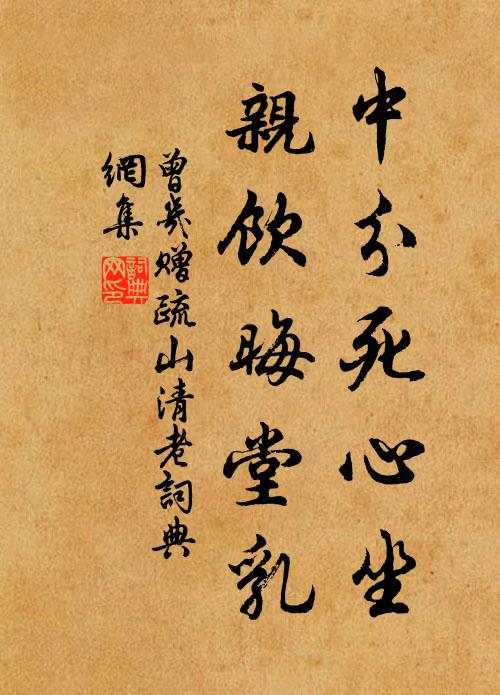 中分死心坐
親飲晦堂乳
曾幾贈疏山清老詞典
網集
詞典網印